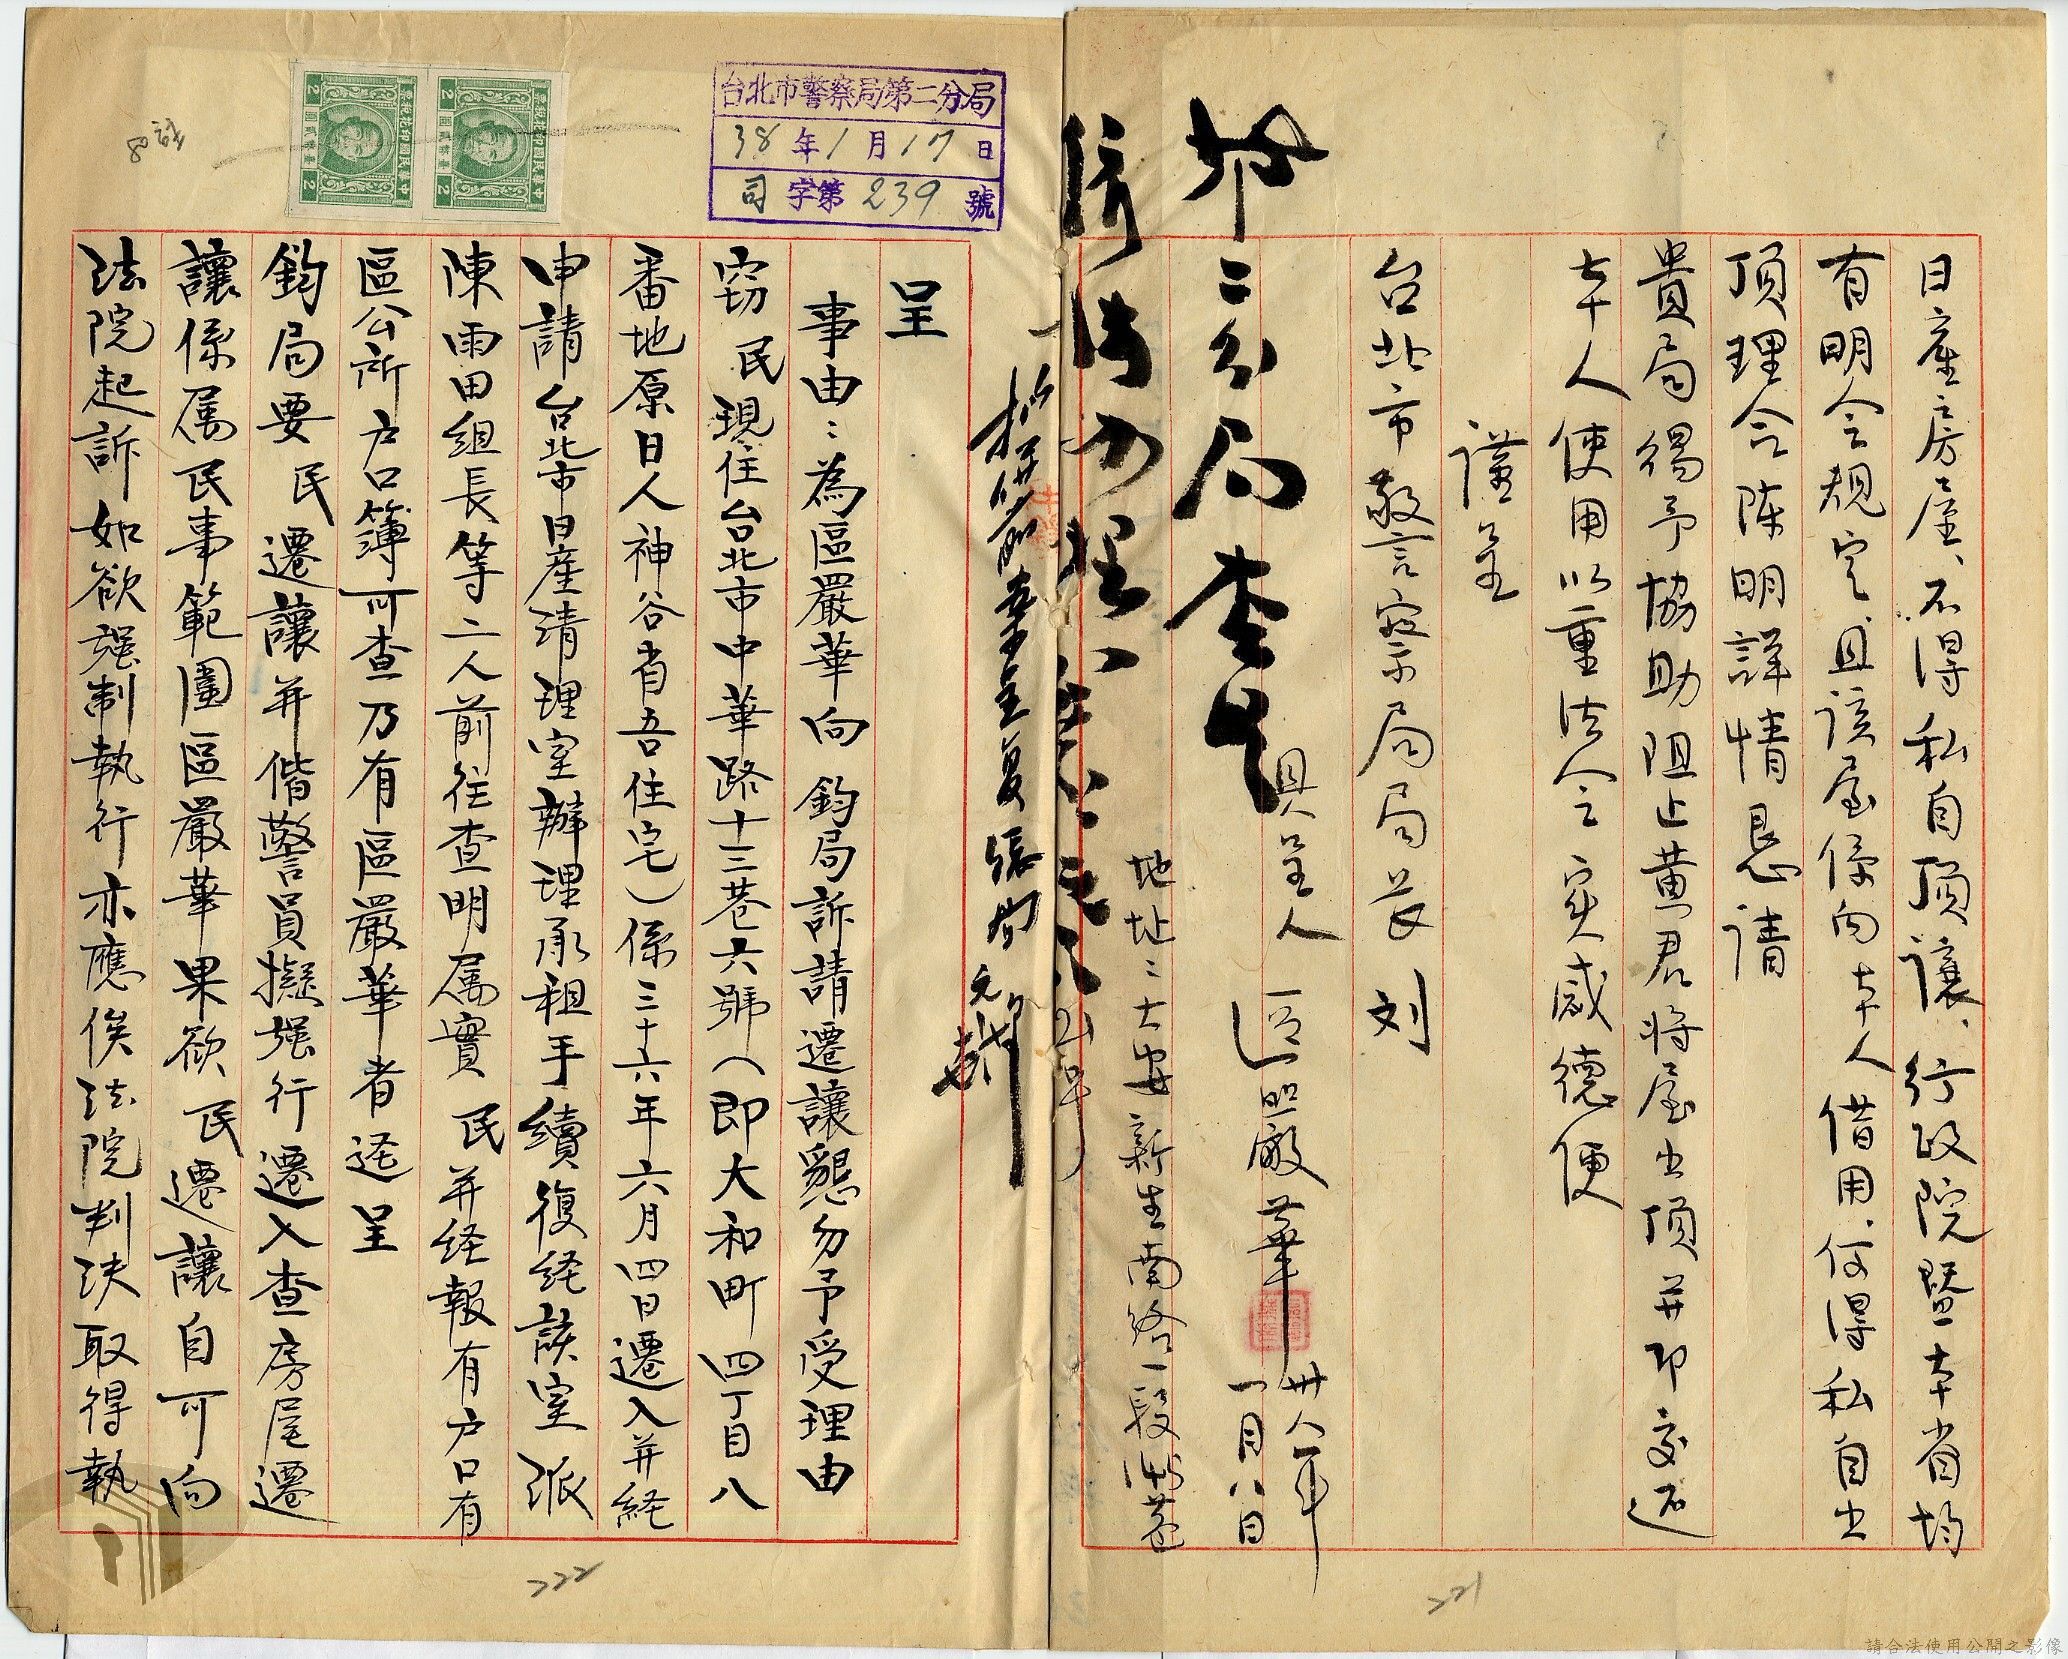 日產房屋、不得私自頂讓、行政院暨本省均
有明令規定、且該屋係向本人借用、何得私自出
頂理合陳明詳情懇請
貴局得予協助阻止黃君將屋出頂并即交還
本人使用以重法令實感德便
謹呈
台北市警察局局長 刘
具呈人 區嚴華
卅八年
一月八日
地址：大安新生南路一段145巷
交二分局查是
台北市警察局第二分局
38年1月17日
司字第239號
呈
事由：為區嚴華向 鈞局訴請遷讓懇勿予受理由
竊 民現住台北市中華路十三巷六號（即大和町四丁目八
番地原日人神谷省吾住宅）係三十六年六月四日遷入并経
申請台北市日產清理室辦理承租手續復経該室派
陳雨田組長等二人前往查明属實 民并経報有户口有
區公所户口簿可查乃有區嚴華者迳呈
鈞局要 民遷讓并偕警員擬强行遷入查房屋遷
讓係属民事範圍區嚴華果欲 民遷讓自可向
法院起訴如欲强制執行亦應俟法院判決取得執
221
222
中華民國印花稅票
2
2
請合法使用公開之影像